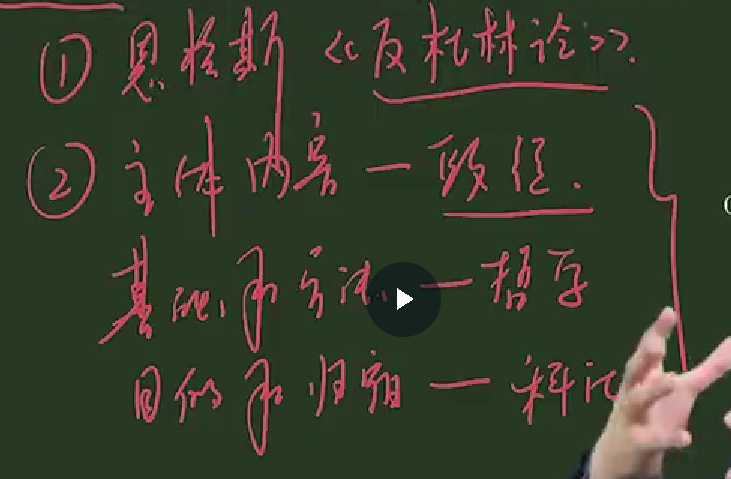 ① 恩格斯《反杜林论》.
② 主体内容 — 政经.
基础和方法 — 哲学
目的和归宿 — 科社